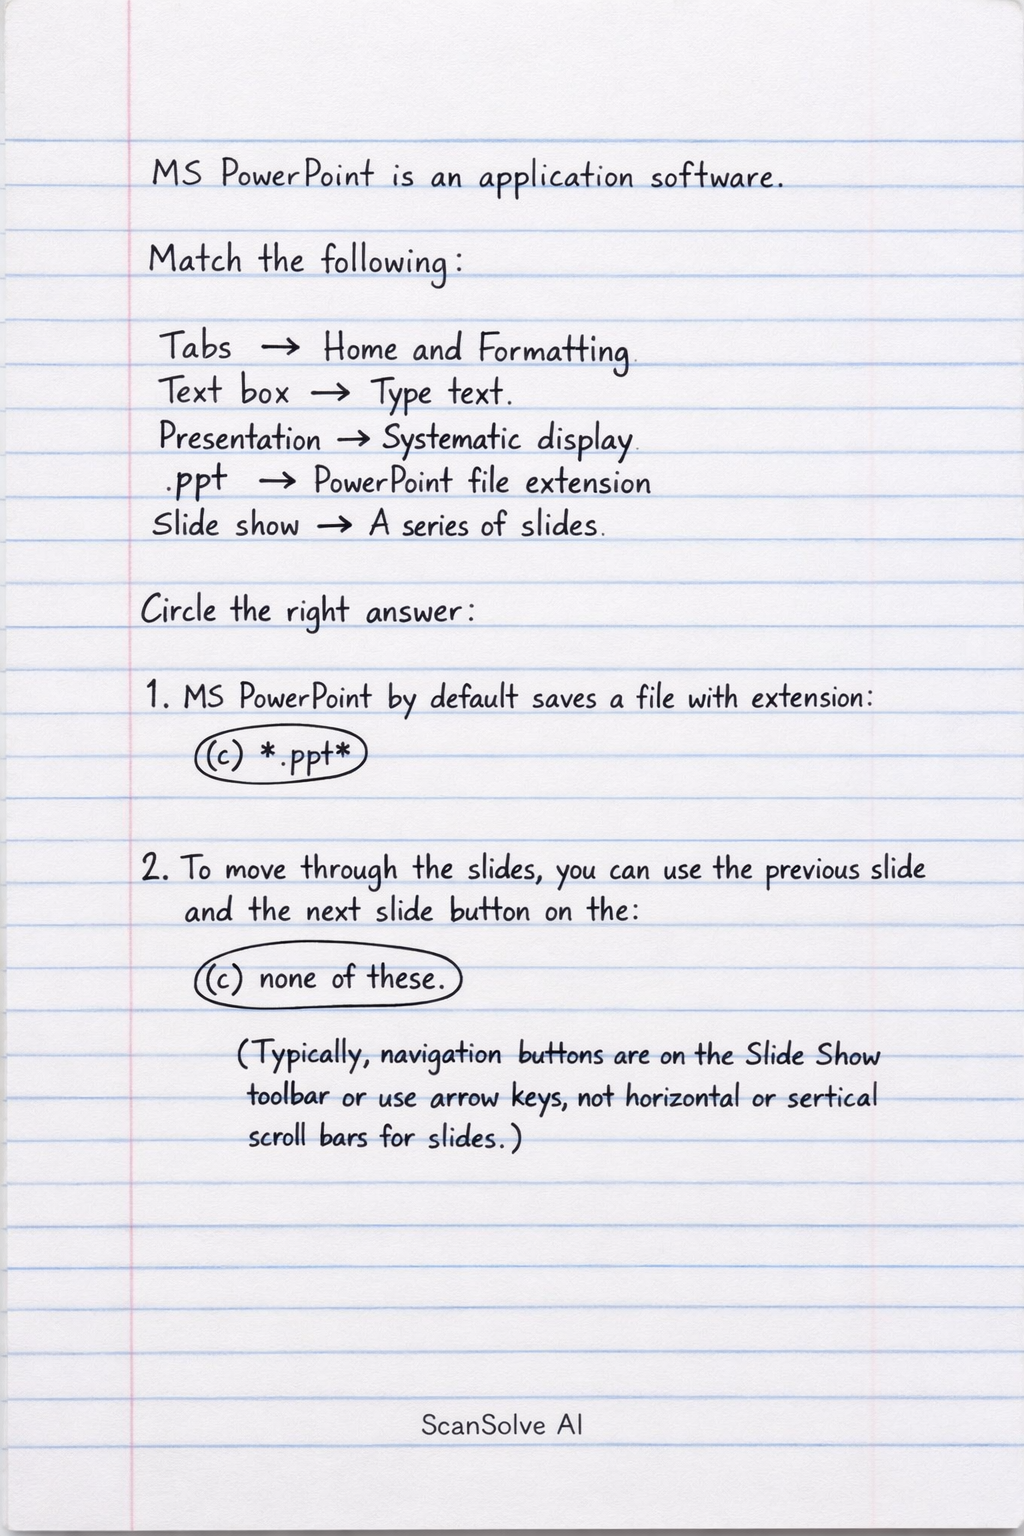 MS PowerPoint is an application software.
Match the following:
Tabs → Home and Formatting.
Text box → Type text.
Presentation → Systematic display.
.ppt → PowerPoint file extension
Slide show → A series of slides.
Circle the right answer:
1. MS PowerPoint by default saves a file with extension:
((c) *.ppt*
2. To move through the slides, you can use the previous slide
and the next slide button on the:
((c) none of these.
(Typically, navigation buttons are on the Slide Show
toolbar or use arrow keys, not horizontal or sertical
scroll bars for slides.)
ScanSolve AI